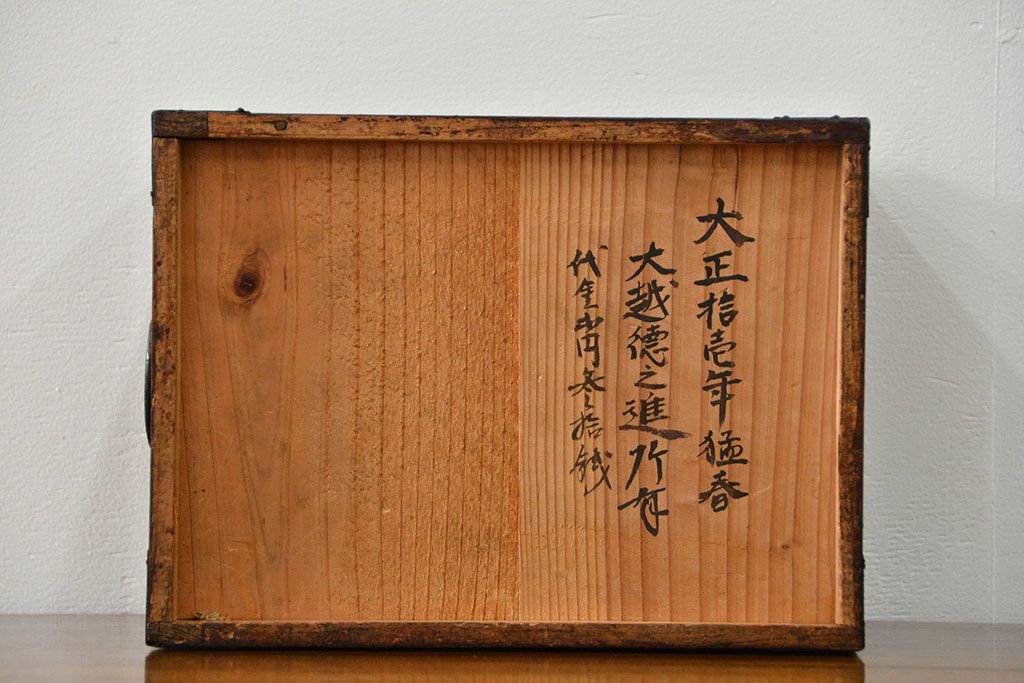 大正拾壱年猛春
大越德之進所有
代金 円参拾銭